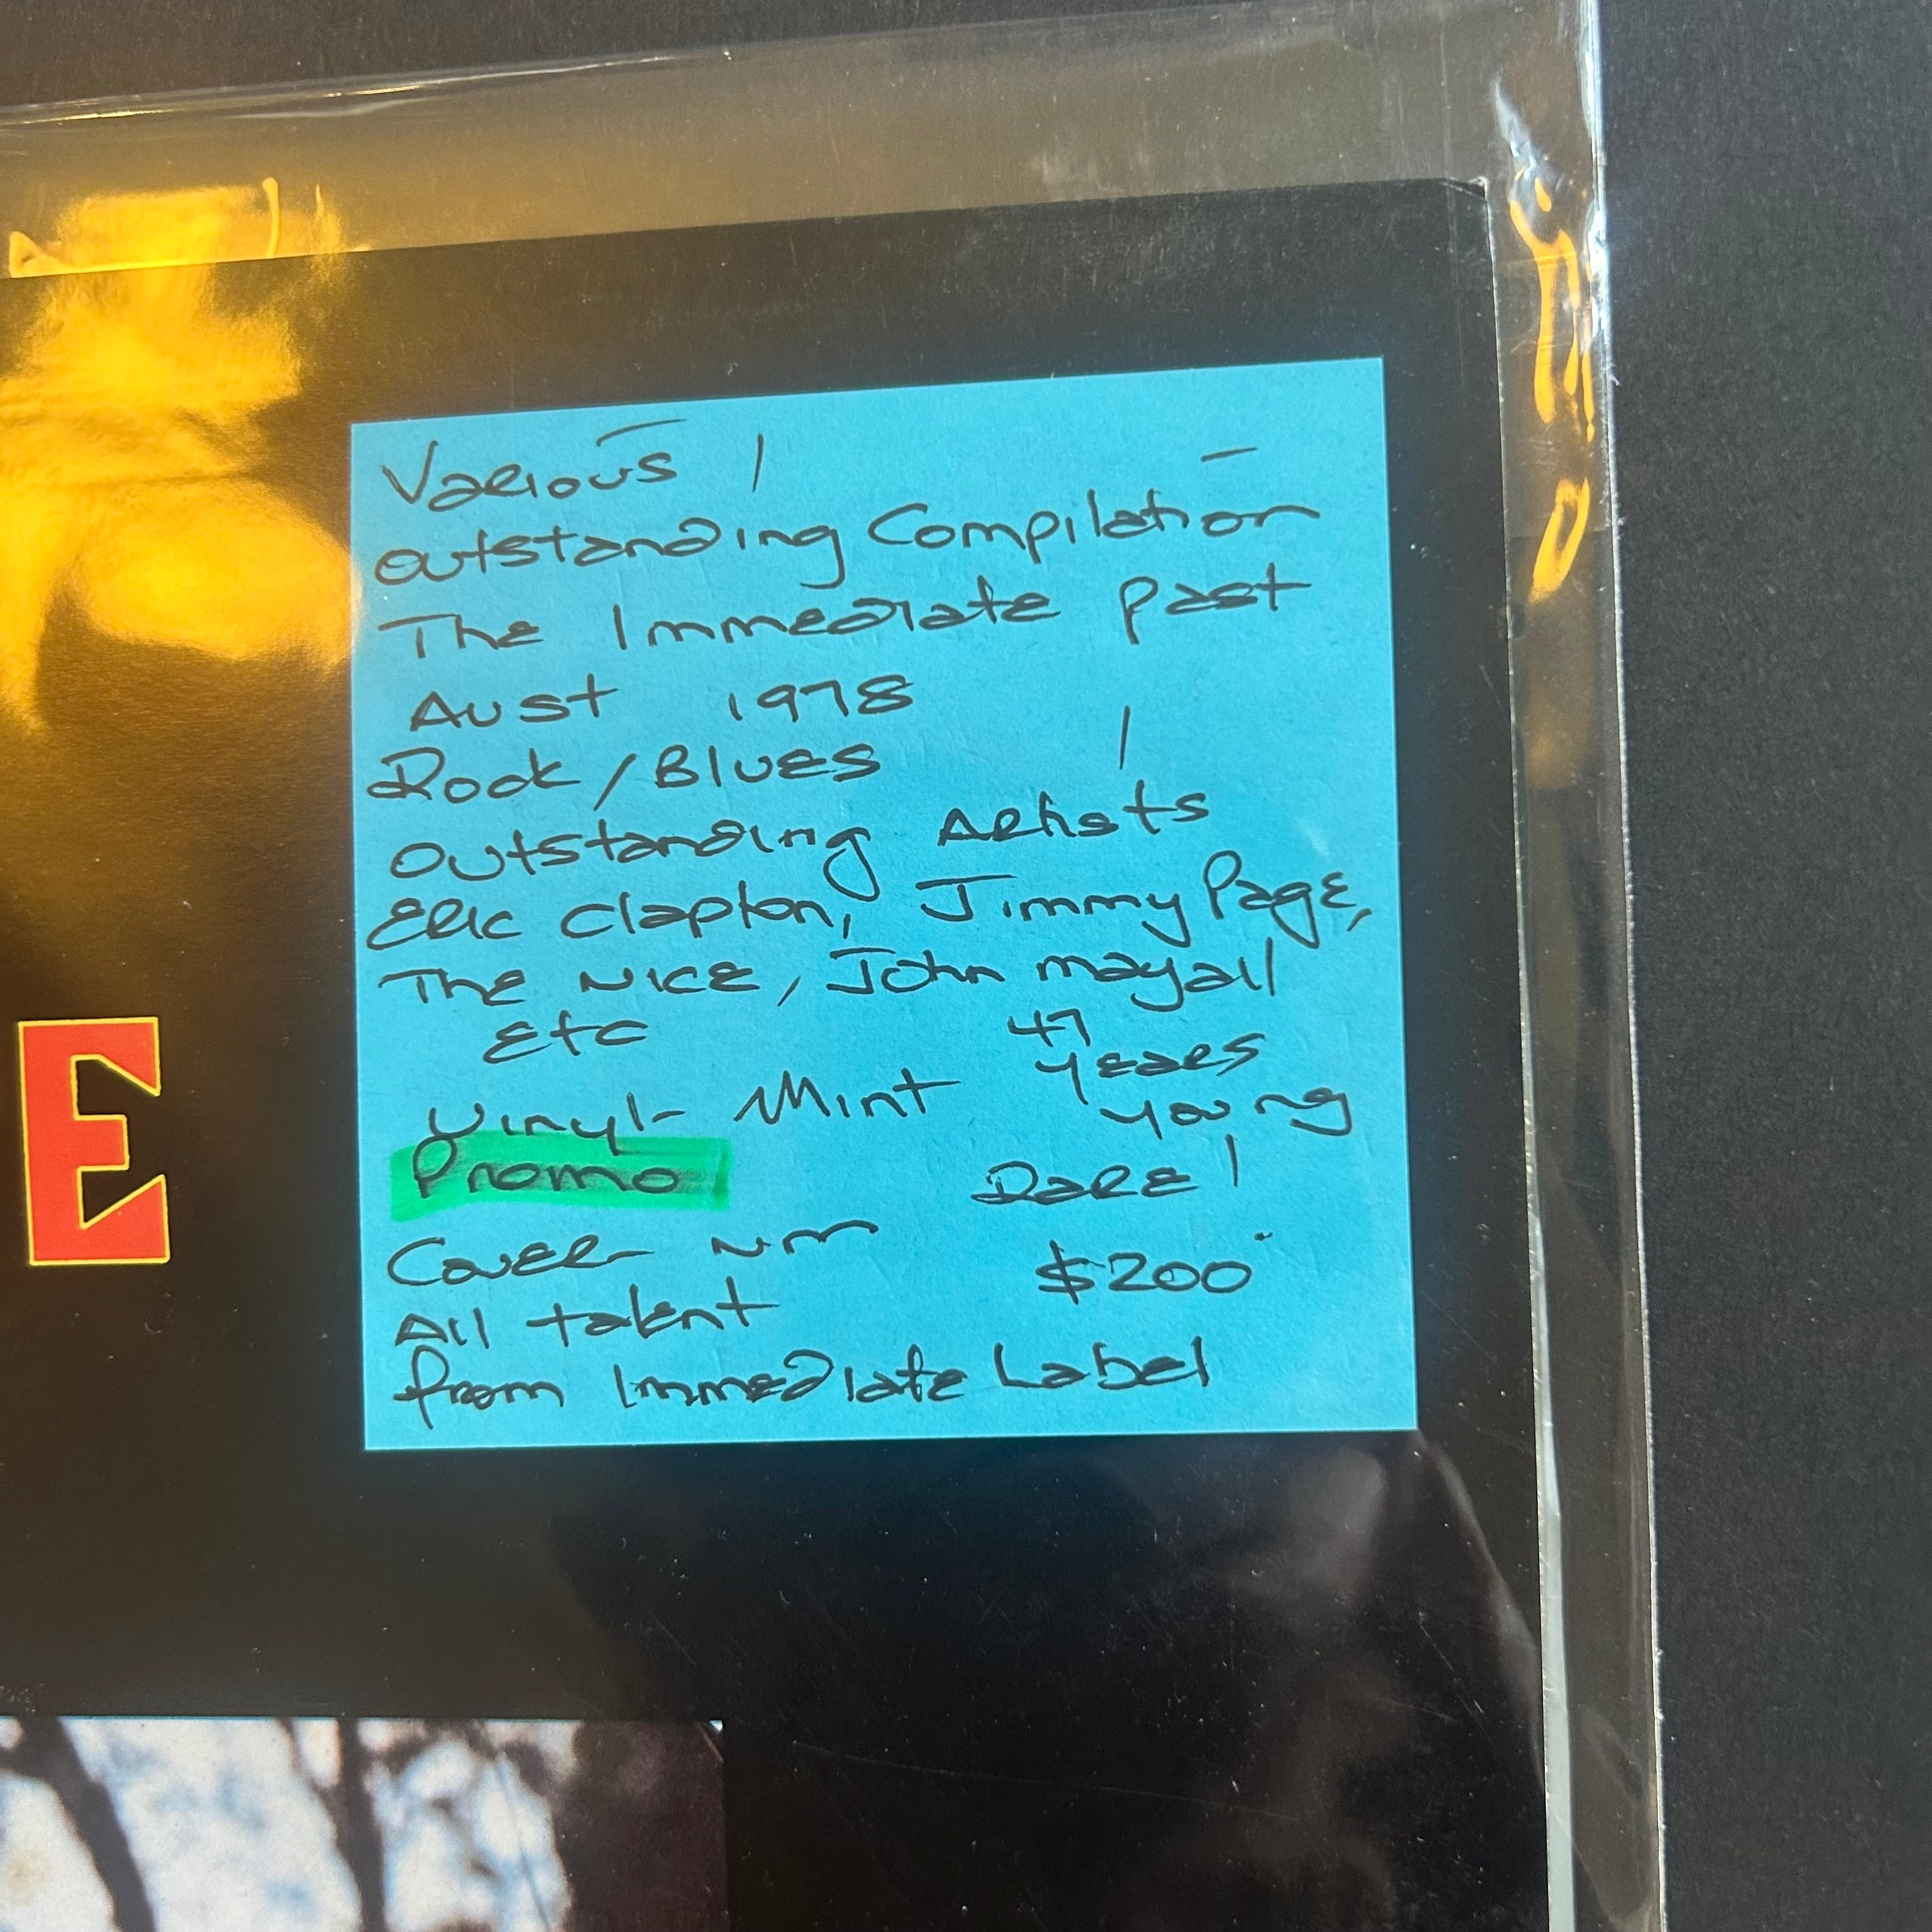 Various /
Outstanding Compilation
The Immediate Past
Aust 1978
Rock / Blues
Outstanding Artists
Eric Clapton, Jimmy Page,
The Nice, John Mayall
Etc
47
Years
Young
Vinyl- Mint
Promo
Rare!
Cover NM
$200
All talent
from Immediate Label
E